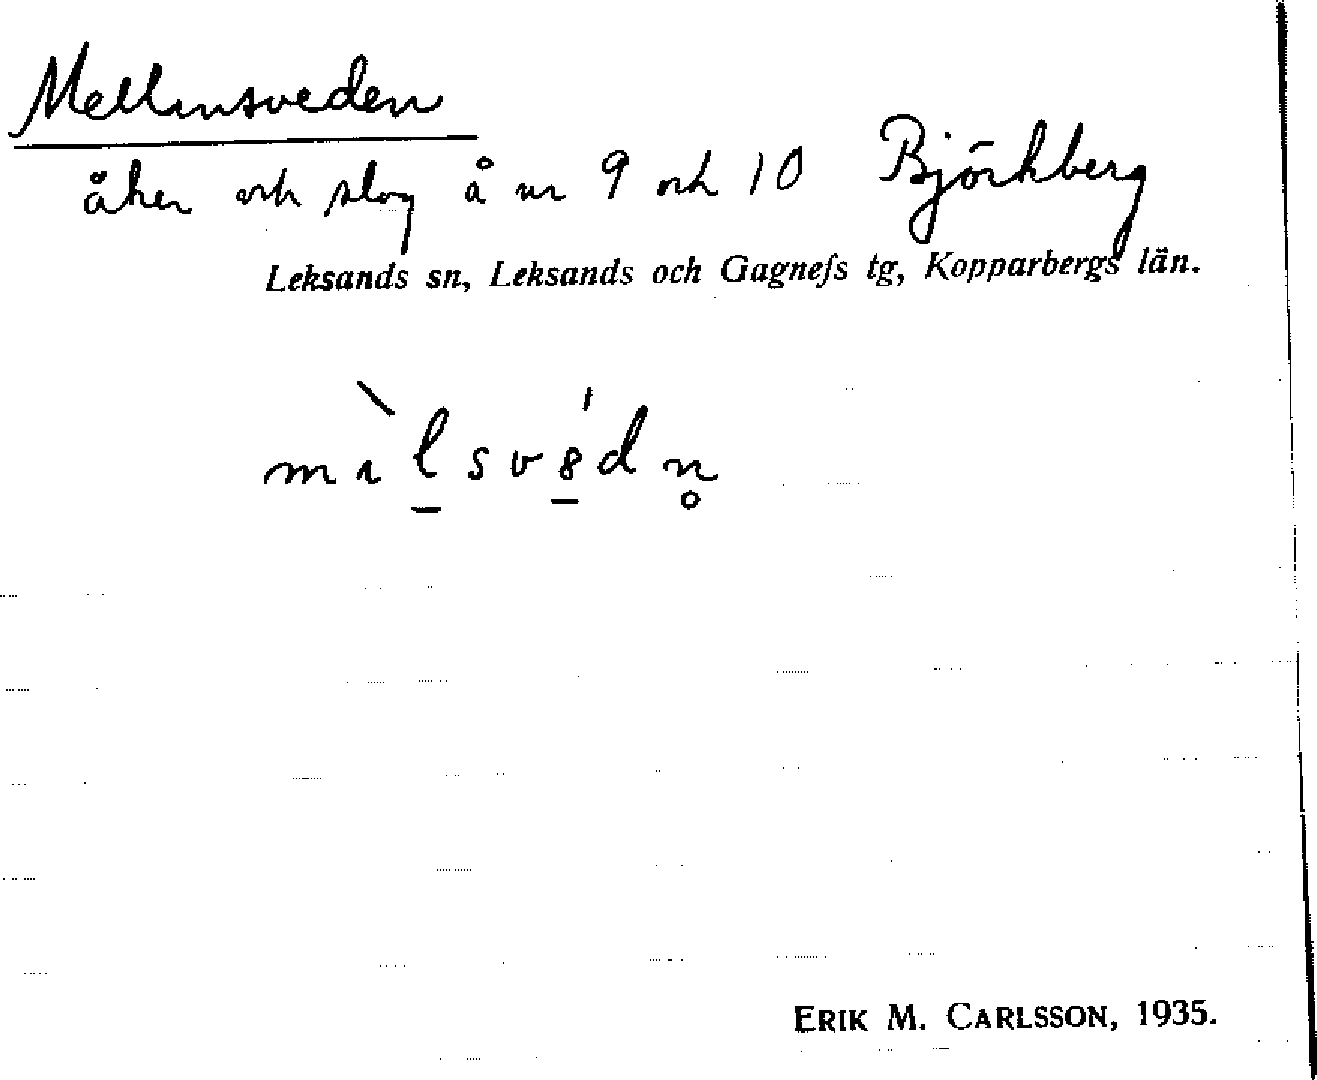 Mellansveden
åker och slog å nr 9 och 10 Björkberg
Leksands sn, Leksands och Gagnefs tg, Kopparbergs län.
ERIK M. CARLSSON, 1935.